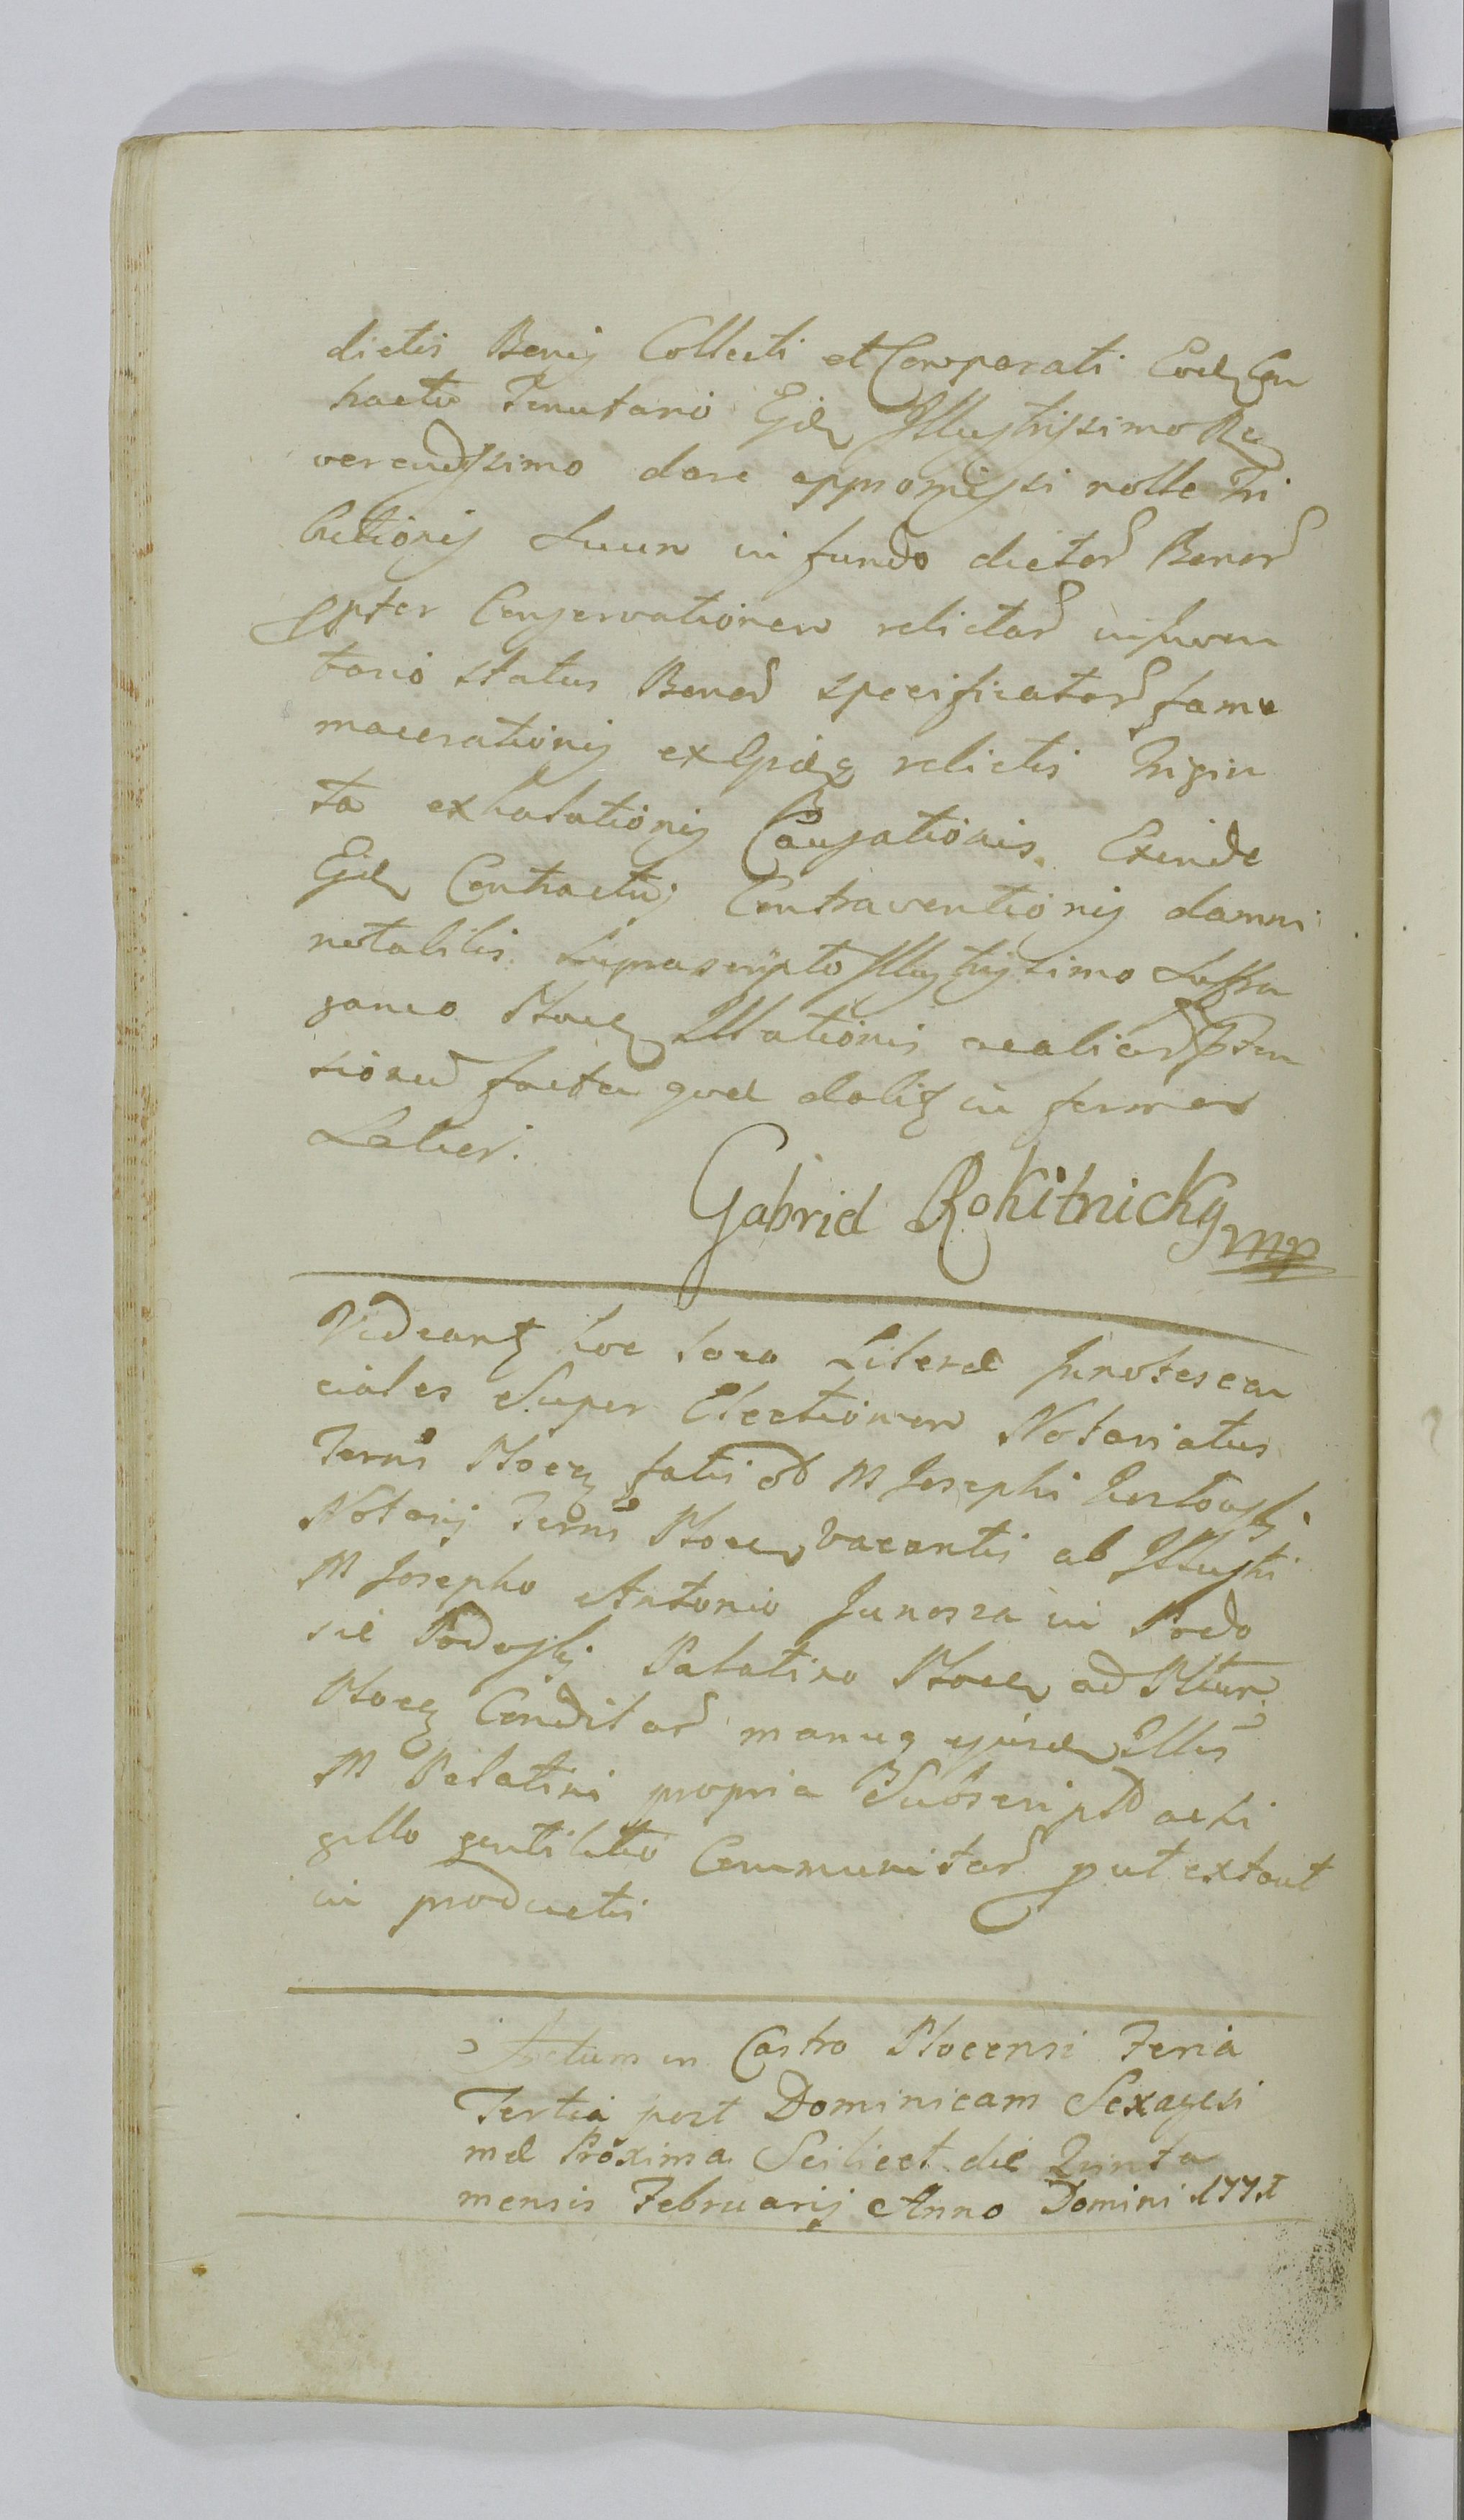 dictis Bonis Collecti et Comparati Eod Con
tractu Tenutario Ejd Illustrissimo Re
verendissimo dare appromissi nolle Tri
butionis Suum in fundo dictor Bonor
ppter Conservationem relictar inInven
tario status Bonor specificator fame
macerationis ex relictis Trigin
ta exhalationis Causationis Exinde
Ejd Contractus Contraventionis damni
notabilis Suprascripto Illustrissimo Suffra
ganeo Ploce Illationis aealiar Pten
sionu facta qvod in forma
Latiori.
Gabriel Rokitnicky mp
Videantz hoc loco Literæ Innotescen
ciales Super Electionem Notariatus
Terris Ploce fatis M Josephi
Notarij Terris Ploce vacantis ab Illustri
M Josepho Antonio Junosza in Podo
sie Podoski Palatino Ploce ad
Ploce Conditar manus ejusd Illis
M Palatini propria Subscript acsi
gillo gentilitio Communitar put extant
in productis
Actum in Castro Plocensi Feria
Tertia post Dominicam Sexagesi
mæ Proxima Scilicet die Qvinta
mensis Februarij Anno Domini 1771